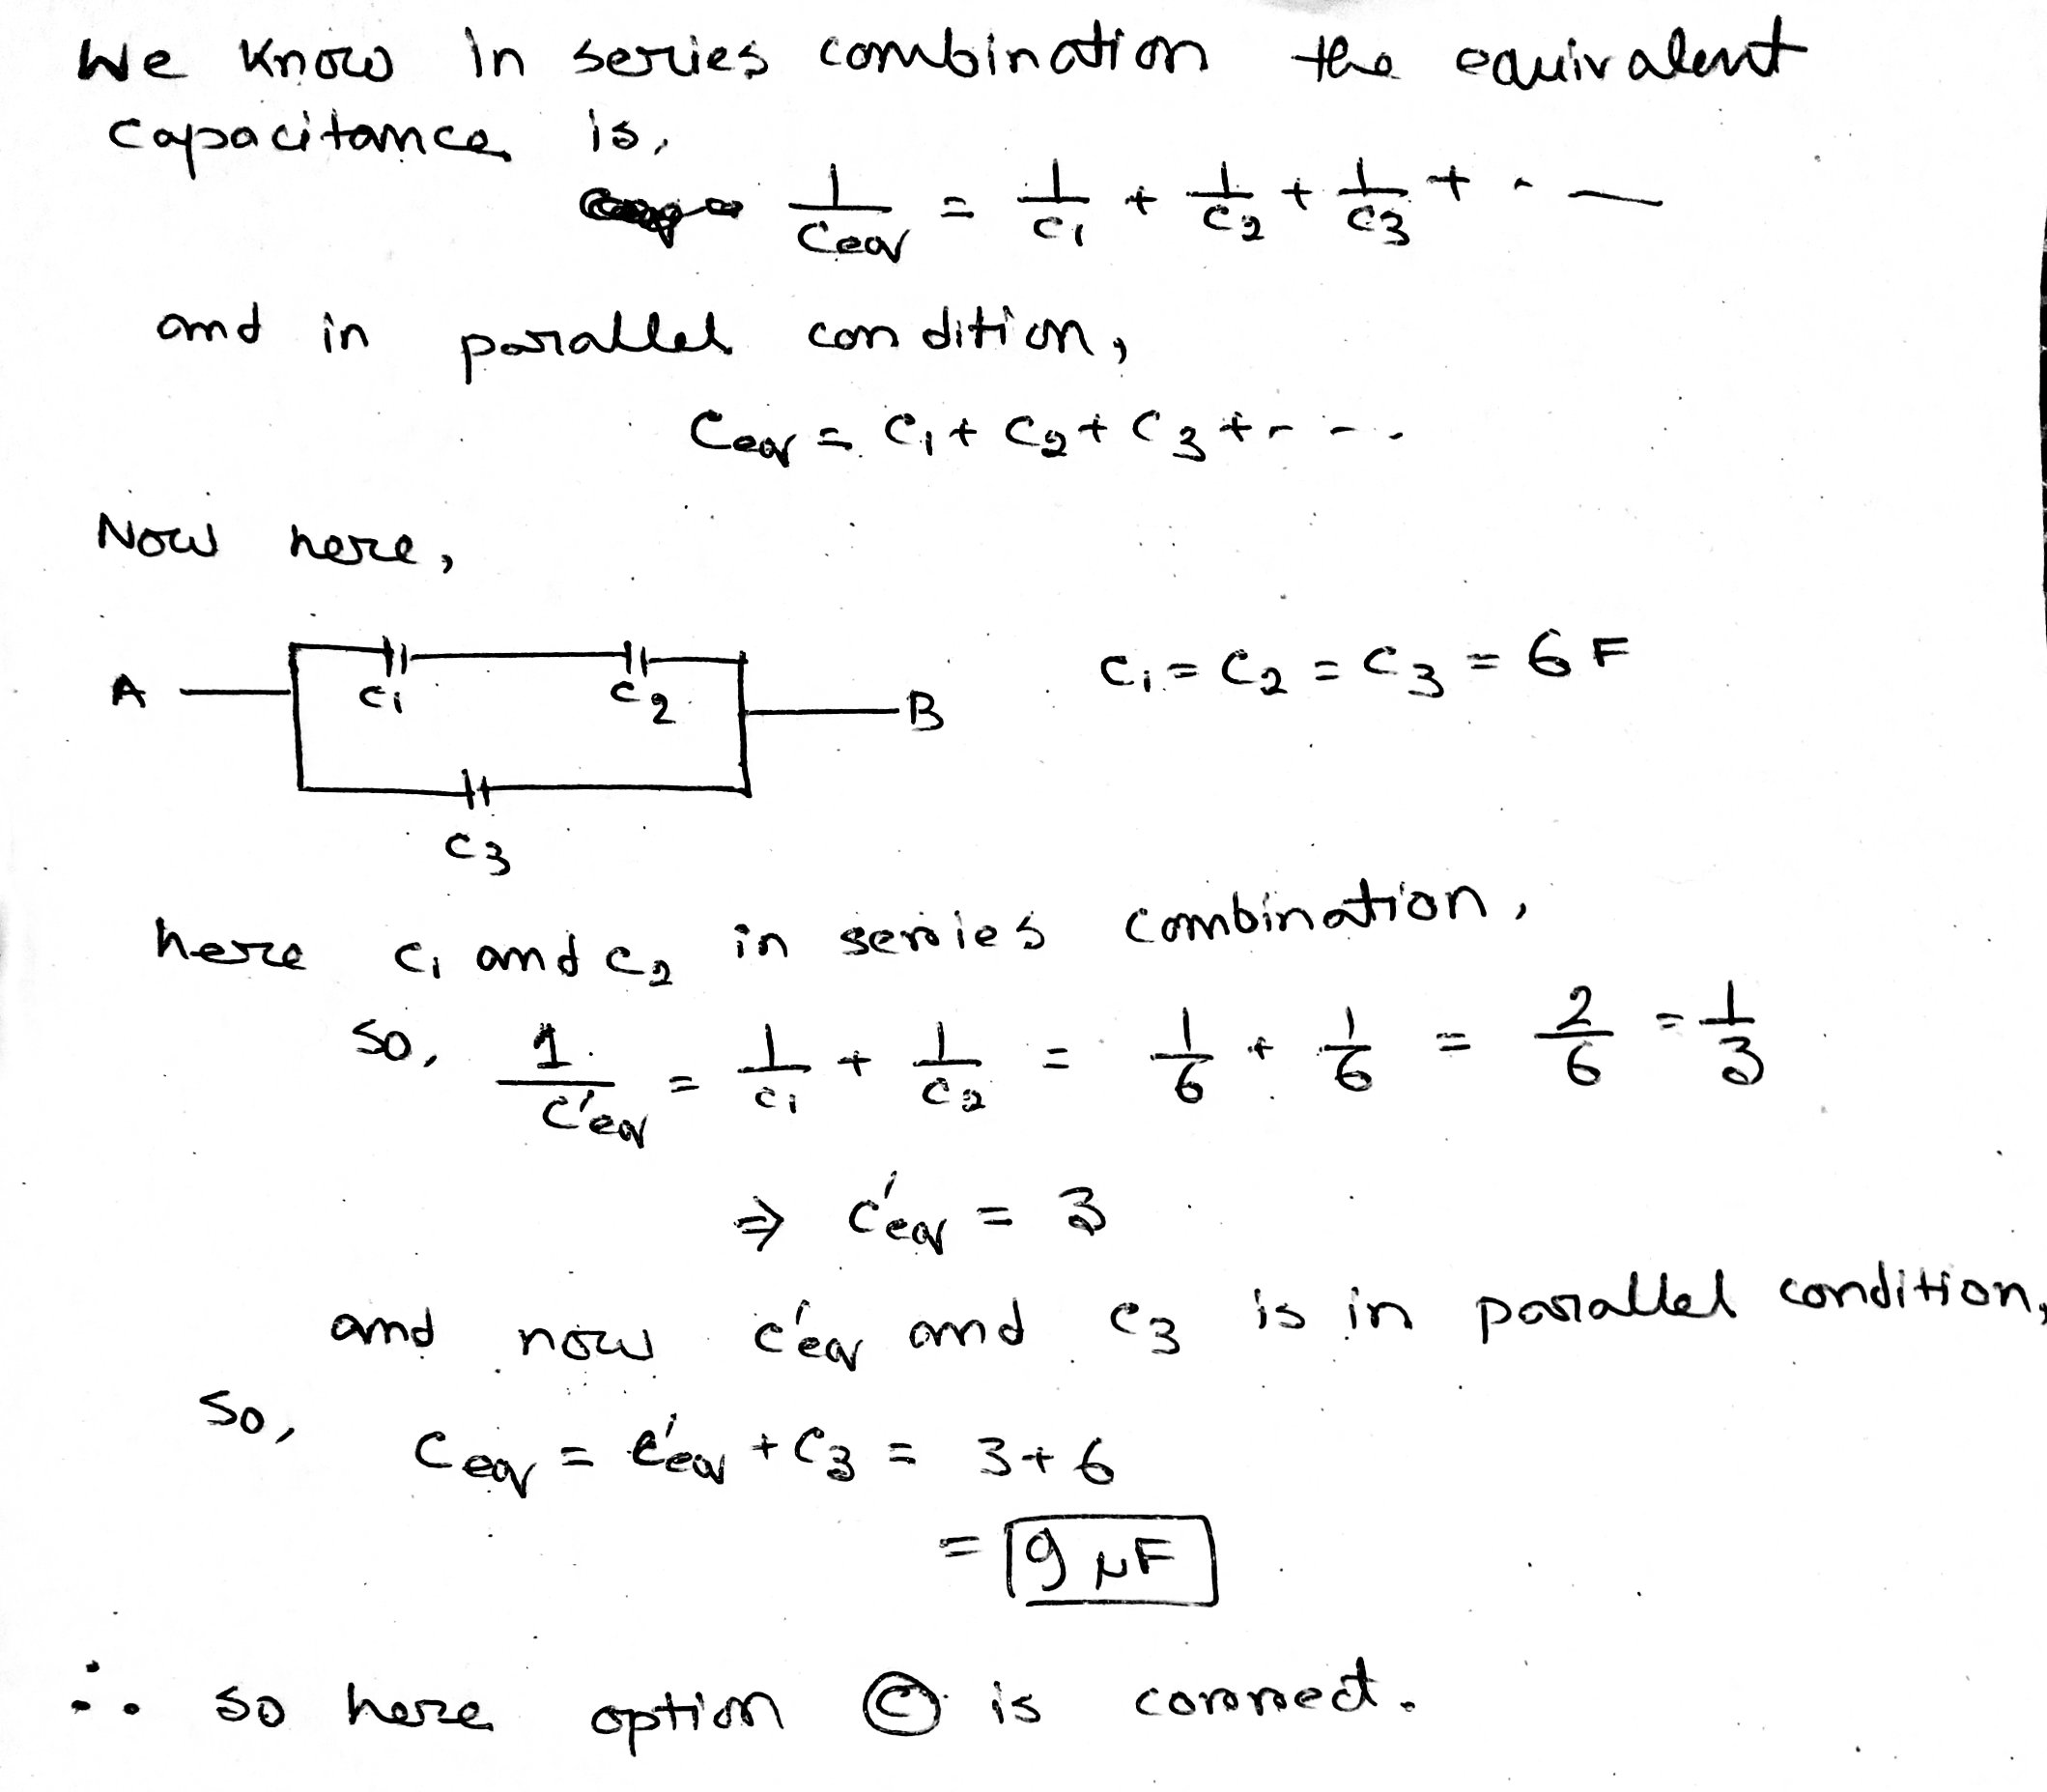 We know in series combination the equivalent
capacitance is,
1/Ceq = 1/C1 + 1/C2 + 1/C3 + - —
and in parallel condition,
Ceq = C1 + C2 + C3 + - - -
Now here,
A C1 C2 B C1 = C2 = C3 = 6 F
C3
here C1 and C2 in series combination,
so, 1/C'eq = 1/C1 + 1/C2 = 1/6 + 1/6 = 2/6 = 1/3
⇒ C'eq = 3
and now C'eq and C3 is in parallel condition,
so,
Ceq = C'eq + C3 = 3 + 6
= 9 μF
∴ so here option Ⓒ is correct.